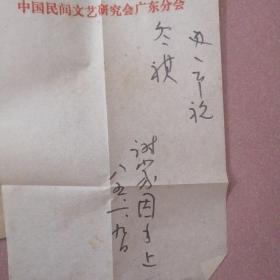 中国民间文艺研究会广东分会
祝
冬祺
谢因手上
八五、一、九日